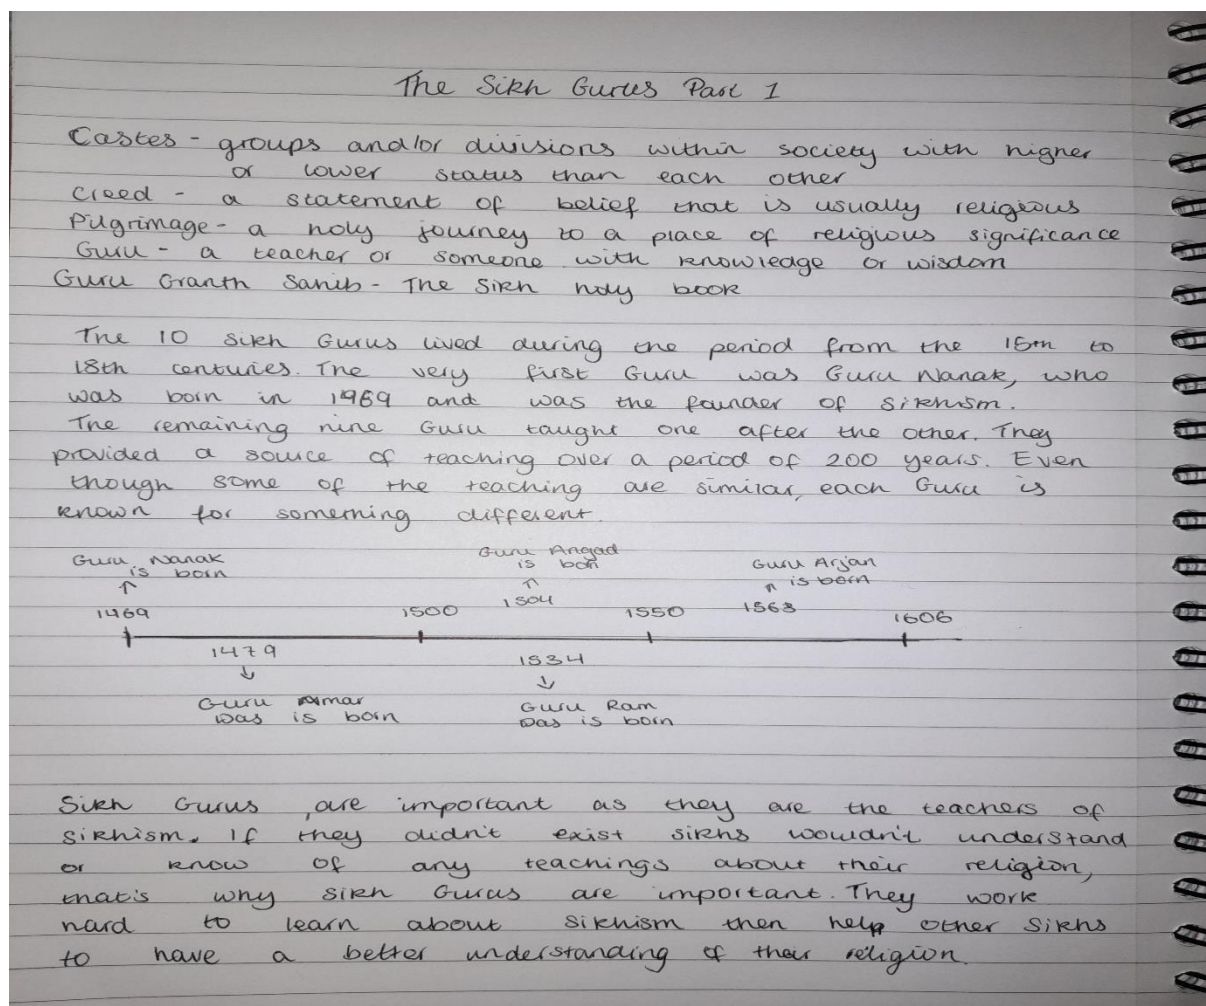 The Sikh Gurus Part 1
Castes - groups and/or divisions within society with higher
or lower status than each other
Creed - a statement of belief that is usually religious
Pilgrimage - a holy journey to a place of religious significance
Guru - a teacher or someone with knowledge or wisdom
Guru Granth Sahib - The Sikh holy book
The 10 Sikh Gurus lived during the period from the 15th to
18th centuries. The very first Guru was Guru Nanak, who
was born in 1969 and was the founder of Sikhism.
The remaining nine Guru taught one after the other. They
provided a source of teaching over a period of 200 years. Even
though some of the teaching are similar, each Guru is
known for something different.
Guru Nanak
is born
Guru Angad
is born
Guru Arjan
is born
1469
1500
1504
1550
1563
1606
1479
1534
Guru Amar
Das is born
Guru Ram
Das is born
Sikh Gurus are important as they are the teachers of
Sikhism. If they didn't exist sikhs wouldn't understand
or know of any teachings about their religion,
that's why sikh Gurus are important. They work
hard to learn about Sikhism then help other Sikhs
to have a better understanding of their religion.